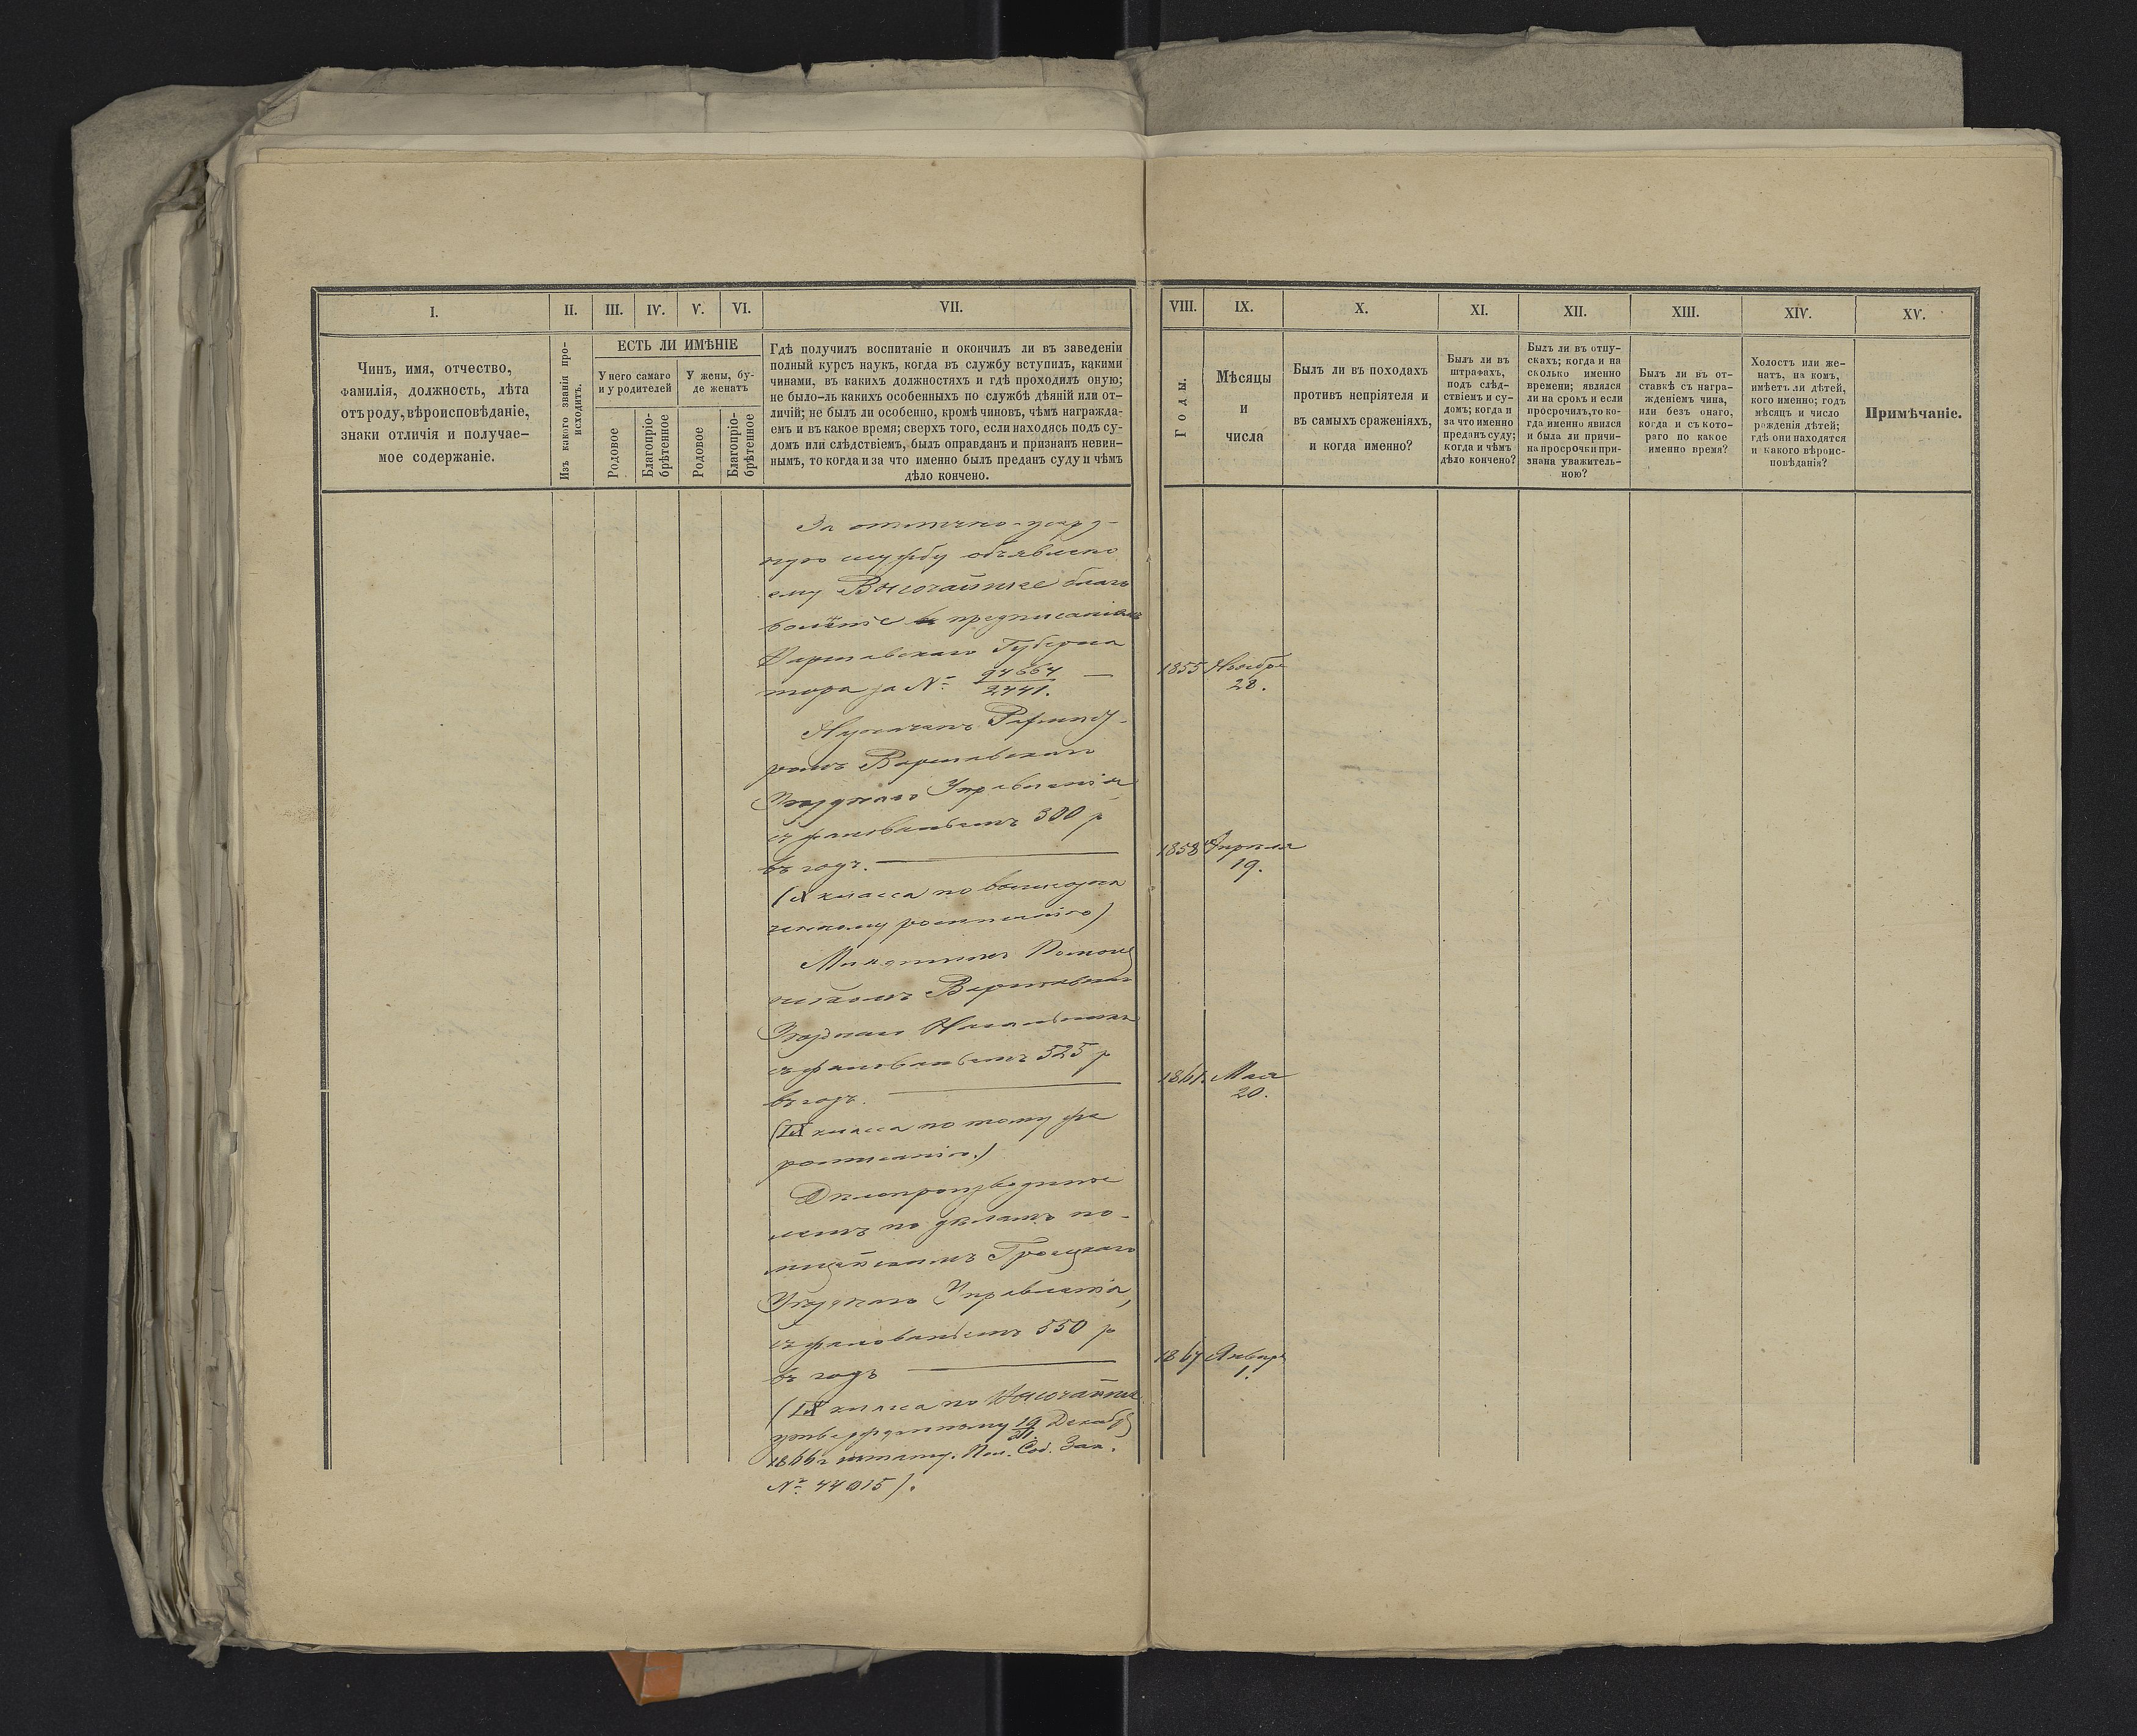 I.
II.
III.
IV.
V.
VI.
VII.
ЕСТЬ ЛИ ИМѢНІЕ
Чинъ, имя, отчество,
фамилія, должность, лѣта
отъ роду, вѣроисповѣданіе,
знаки отличія и получае-
мое содержаніе.
Изъ какого званія про-
исходитъ.
У него самаго
и у родителей
У жены, бу-
де женатъ
Родовое
Благопріо-
брѣтенное
Родовое
Благопріо-
брѣтенное
Гдѣ получилъ воспитаніе и окончилъ ли въ заведеніи
полный курсъ наукъ, когда въ службу вступилъ, какими
чинами, въ какихъ должностяхъ и гдѣ проходилъ оную;
не было-ль какихъ особенныхъ по службѣ дѣяній или от-
личій; не былъ ли особенно, кромѣ чиновъ, чѣмъ награжда-
емъ и въ какое время; сверхъ того, если находясь подъ су-
домъ или слѣдствіемъ, былъ оправданъ и признанъ невин-
нымъ, то когда и за что именно былъ преданъ суду и чѣмъ
дѣло кончено.
За отлично-усерд-
ную службу объявлено
ему Высочайшее благо
воленіе предписаніемъ
Варшавскаго Губерна
тора за № 94664
2441.
Назначенъ
ромъ Варшавскаго
Уѣзднаго Управленія
съ жалованьемъ 300 р
въ годъ.
(X класса по
росписанію)
Младшимъ Помощ
никомъ Варшавскаго
Уѣзднаго Начальника
съ жалованьемъ 525 р
въ годъ.
(IX класса по тому же
росписанію.)
Дѣлопроизводите
лемъ по дѣламъ по-
лицейскимъ Гроецкаго
Уѣзднаго Управленія,
съ жалованьемъ 550 р
въ годъ
(IX класса по Высочайше
утвержденному 19/31 Декабря
1866 г штату. Пол. Соб. Зак.
№ 44015).
VIII.
IX.
X.
XI.
XII.
XIII.
XIV.
XV.
Годы.
Мѣсяцы
и
числа
Былъ ли въ походахъ
противъ непріятеля и
въ самыхъ сраженіяхъ,
и когда именно?
Былъ ли въ
штрафахъ,
подъ слѣд-
ствіемъ и су-
домъ; когда и
за что именно
преданъ суду;
когда и чѣмъ
дѣло кончено?
Былъ ли въ отпу-
скахъ; когда и на
сколько именно
времени; явился
ли на срокъ и если
просрочилъ, то ко-
гда именно явился
и была ли причи-
на просрочки при-
знана уважитель-
ною?
Былъ ли въ от-
ставкѣ съ награ-
жденіемъ чина,
или безъ онаго,
когда и съ кото-
раго по какое
именно время?
Холостъ или же-
натъ, на комъ,
имѣетъ ли дѣтей,
кого именно; годъ
мѣсяцъ и число
рожденія дѣтей;
гдѣ они находятся
и какого вѣроис-
повѣданія?
Примѣчаніе.
1855 Ноября
28.
1858 Апрѣля
19.
1861 Мая
20.
1867 Января
1.